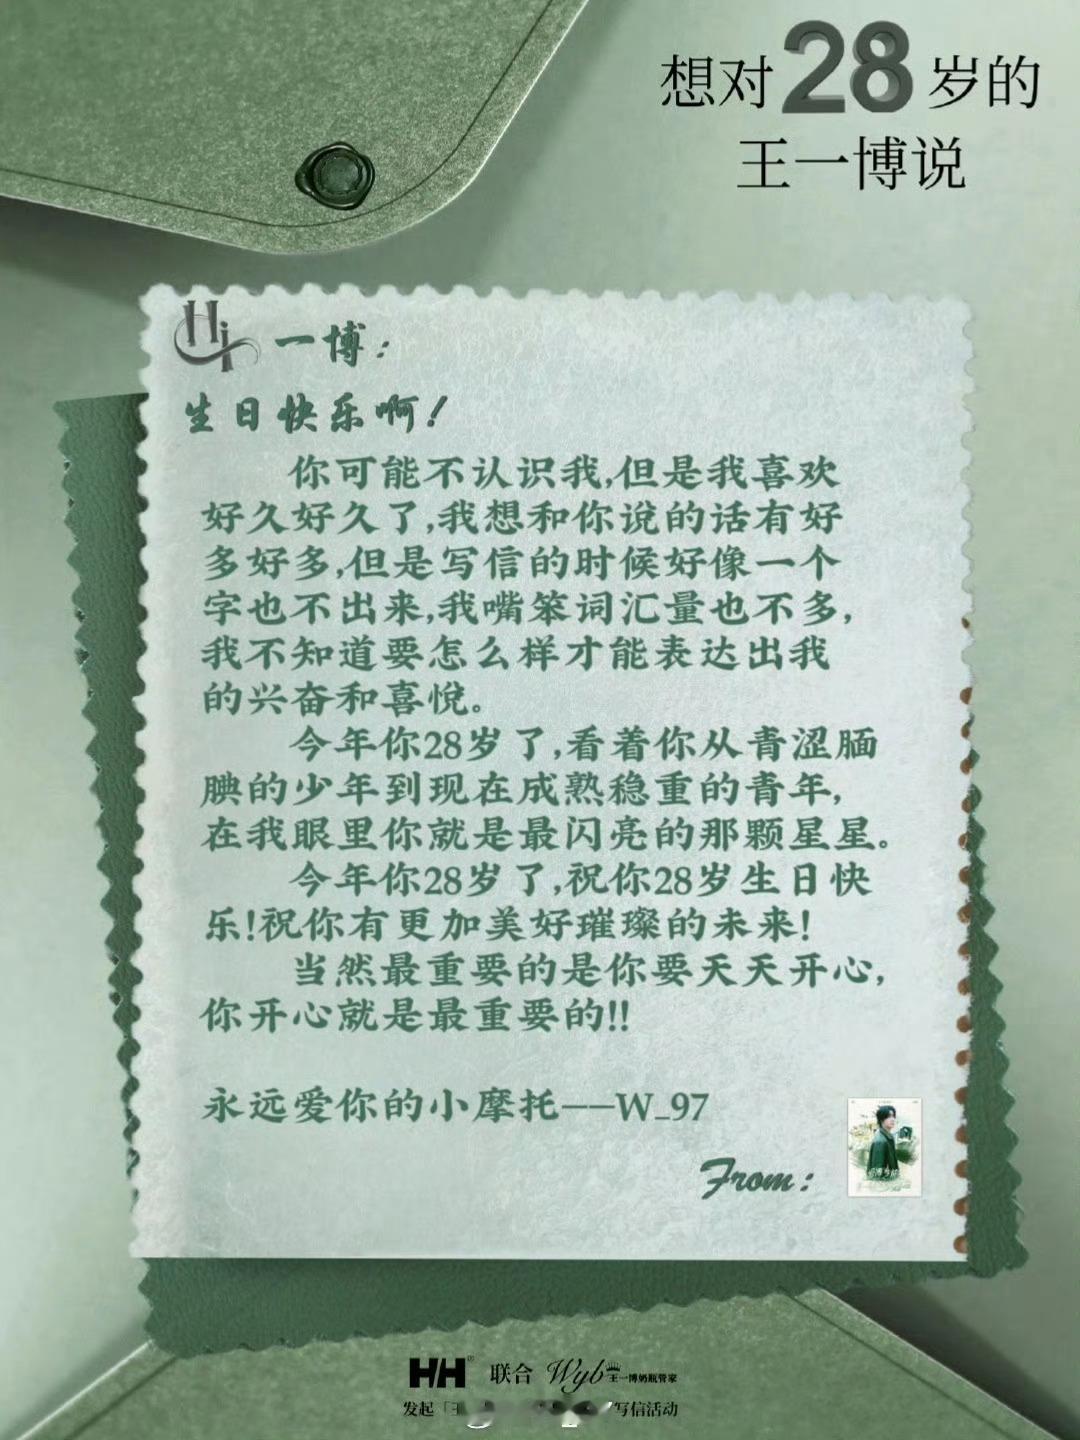 想对28岁的
王一博说
Hi 一博：
生日快乐啊！
你可能不认识我,但是我喜欢
好久好久了,我想和你说的话有好
多好多,但是写信的时候好像一个
字也不出来,我嘴笨词汇量也不多,
我不知道要怎么样才能表达出我
的兴奋和喜悦。
今年你28岁了,看着你从青涩腼
腆的少年到现在成熟稳重的青年,
在我眼里你就是最闪亮的那颗星星。
今年你28岁了,祝你28岁生日快
乐!祝你有更加美好璀璨的未来!
当然最重要的是你要天天开心,
你开心就是最重要的!!
永远爱你的小摩托——W_97
From：
HH® 联合 Wyb 王一博奶瓶管家
发起「王 写信活动